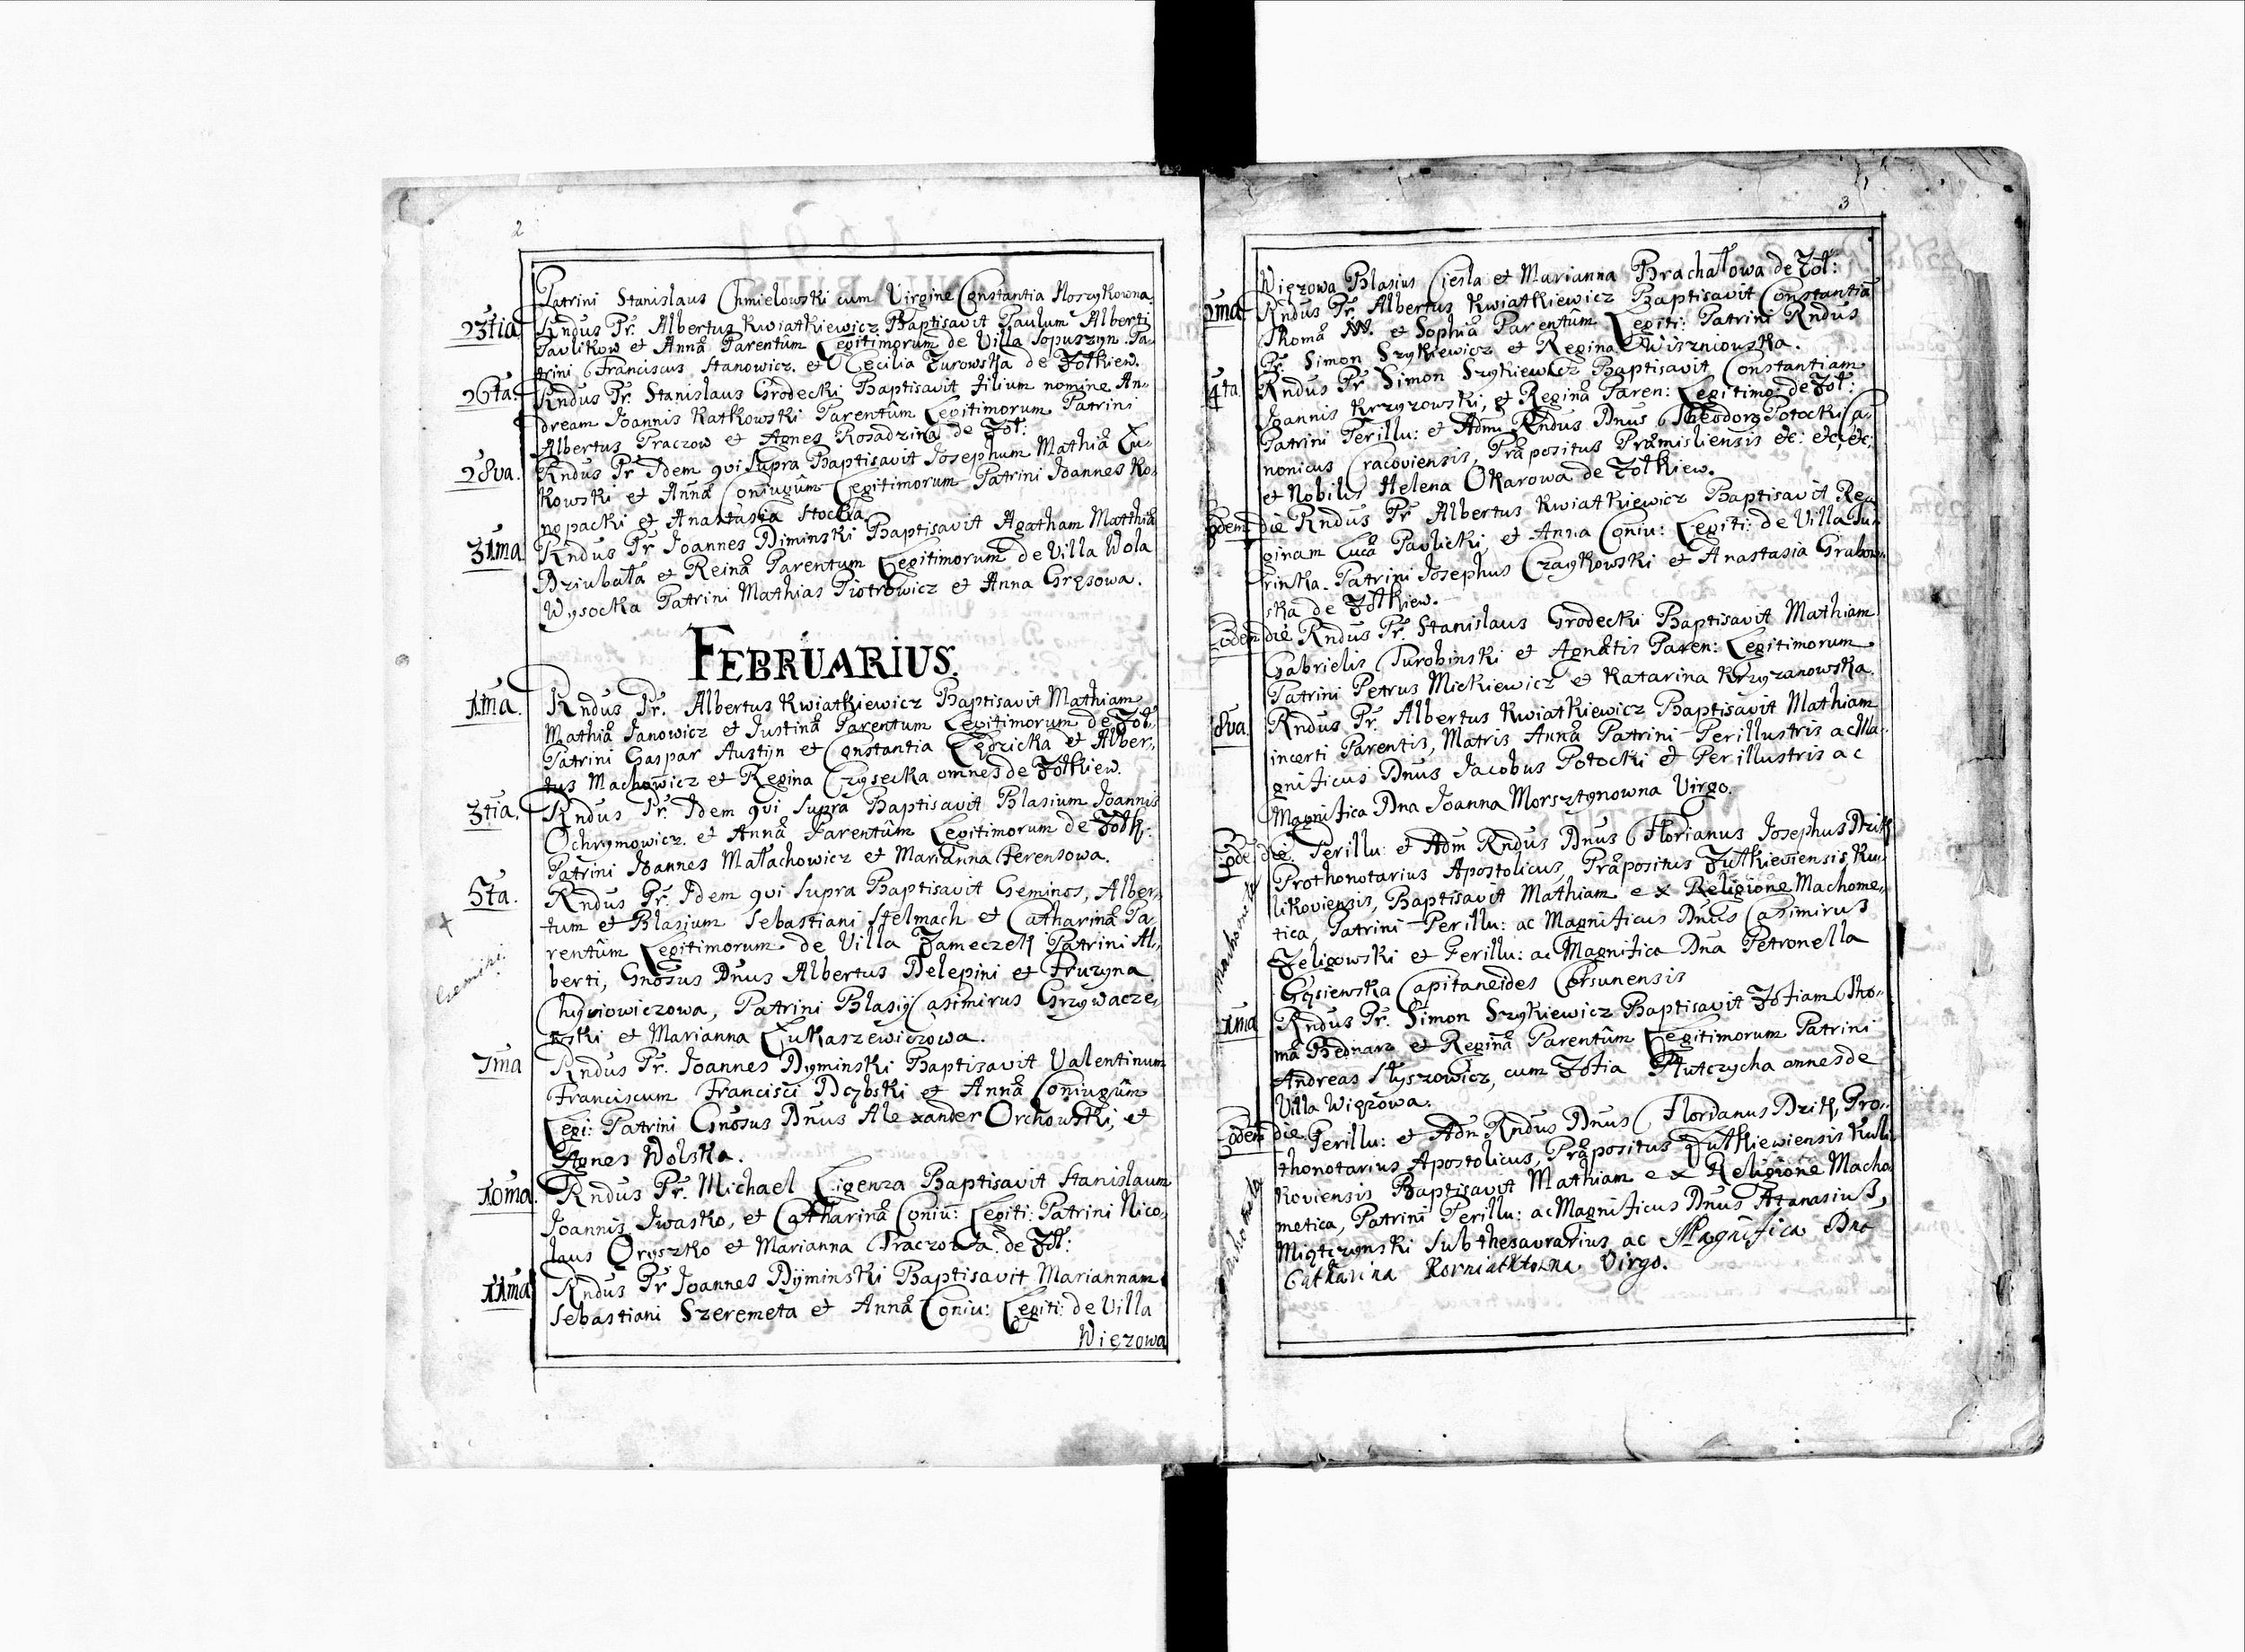 2
Patrini Stanislaus Chmielowski cum Virgine Constantia Noszykowna.
23tia. Rndus Pr. Albertus Kwiatkiewicz Baptisavit Paulum Alberti
Pavlikow et Annæ Parentûm Legitimorum de Villa Sopuszyn. Pa-
trini Franciscus Stanowicz. et Cecilia Zurowska de Zołkiew.
26ta. Rndus Pr. Stanislaus Grodecki Baptisavit filium nomine An-
dream Joannis Katkowski Parentûm Legitimorum Patrini
Albertus Praczow et Agnes Rosadzina de Zoł:
28va. Rndus Pr Idem qvi supra Baptisavit Josephum Mathiæ Łu-
kowski et Annæ Coniugûm Legitimorum Patrini Joannes Ko-
nopacki et Anastasia Stocka.
31ma Rndus Pr Joannes Diminski Baptisavit Agatham Matthiæ
Dziubała et Reinæ Parentum Legitimorum de Villa Wola
Wysocka Patrini Mathias Piotrowicz et Anna Gręsowa.
FEBRUARIUS.
1ma. Rndus Pr. Albertus Kwiatkiewicz Baptisavit Mathiam
Mathiæ Janowicz et Justinæ Parentum Legitimorum de Zoł:
Patrini Gaspar Austyn et Constantia Lędzicka et Alber-
tus Machowicz et Regina Czysecka omnes de Zołkiew.
3tia. Rndus Pr. Idem qvi supra Baptisavit Blasium Joannis
Ochrymowicz. et Annæ Parentûm Legitimorum de Zołk:
Patrini Joannes Małachowicz et Marianna Ferensowa.
5ta. Rndus Pr. Idem qvi supra Baptisavit Geminos, Alber-
tum et Blasium Sebastiani Stelmach et Catharinæ Pa-
rentûm Legitimorum de Villa Zameczek Patrini Al-
Gemini.
berti, Gnosus Dnus Albertus Delepini et Pruzyna
Chyniowiczowa, Patrini Blasij Casimirus Grzywacze-
wski et Marianna Łukaszewiczowa.
7ma Rndus Pr. Joannes Dyminski Baptisavit Valentinum
Franciscum Francisci Dębski et Annæ Coniugûm
Legi: Patrini Gnosus Dnus Alexander Orchowski, et
Agnes Wolska.
10ma. Rndus Pr. Michael Ligenza Baptisavit Stanislaum
Joannis Iwasko, et Catharinæ Coniu: Legiti: Patrini Nico-
laus Oryszko et Marianna Praczowa de Zoł:
11ma Rndus Pr Joannes Dÿminski Baptisavit Mariannam
Sebastiani Szeremeta et Annæ Coniu: Legiti: de Villa
Więzowa
3
Więzowa Blasius Ciesla et Marianna Brachałowa de Zoł:
2ma Rndus Pr. Albertus Kwiatkiewicz Baptisavit Constantiã
Thomæ NN. et Sophiæ Parentûm Legiti: Patrini Rndus
Pr. Simon Szykiewicz et Regina Wiszniowska.
4ta. Rndus Pr Simon Szykiewicz Baptisavit Constantiam
Joannis Krzyzowski, et Reginæ Paren: Legitimo: de Zoł:
Patrini Perillu: et Adm Rndus Dnus Theodorg Potocki Ca-
nonicus Cracoviensis, Præpositus Præmisliensis &c: &c, &c;
et Nobilis Helena Okarowa de Zołkiew.
Eodem die Rndus Pr Albertus Kwiatkiewicz Baptisavit Re-
ginam Lucæ Pavlicki, et Anna Coniu: Legiti: de Villa Tu-
rinka. Patrini Josephus Czaykowski et Anastasia Grabow-
ska de Zołkiew.
Eodem die Rndus Pr. Stanislaus Grodecki Baptisavit Mathiam
Gabrielis Turobinski et Agnetis Paren: Legitimorum
Patrini Petrus Mickiewicz et Katarina Krzyzanowska.
8va. Rndus Pr. Albertus Kwiatkiewicz Baptisavit Mathiam
incerti Parentis, Matris Annæ Patrini Perillustris ac Ma-
gnificus Dnus Jacobus Potocki et Perillustris ac
Magnifica Dna Joanna Morsztynowna Virgo.
die. Perillu: et Adm Rndus Dnus Florianus Josephus Dzik
Prothonotarius Apostolicus, Præpositus Zułkieviensis, Ku-
likoviensis, Baptisavit Mathiam ex Religione Machome-
tica Patrini Perillu: ac Magnificus Dnus Casimirus
Zeligowski et Perillu: ac Magnifica Dna Petronella
Gąsiewska Capitaneides Corsunensis
Rndus Pr. Simon Szykiewicz Baptisavit Zofiam Tho-
mæ Bednarz et Reginæ Parentûm Legitimorum Patrini
Andreas Słyszowicz, cum Zofia Hutczycha omnes de
Villa Więzowa.
Eodem die. Perillu: et Adm Rndus Dnus Florianus Dzik, Pro-
thonotarius Apostolicus, Præpositus Zułkiewiensis Kuli-
koviensis Baptisavit Mathiam ex Religione Macho
metica, Patrini Perillu: ac Magnificus Dnus Atanasius,
Miączynski Subthesavrarius ac Magnifica Dna
Catharina Korniaktowna Virgo.